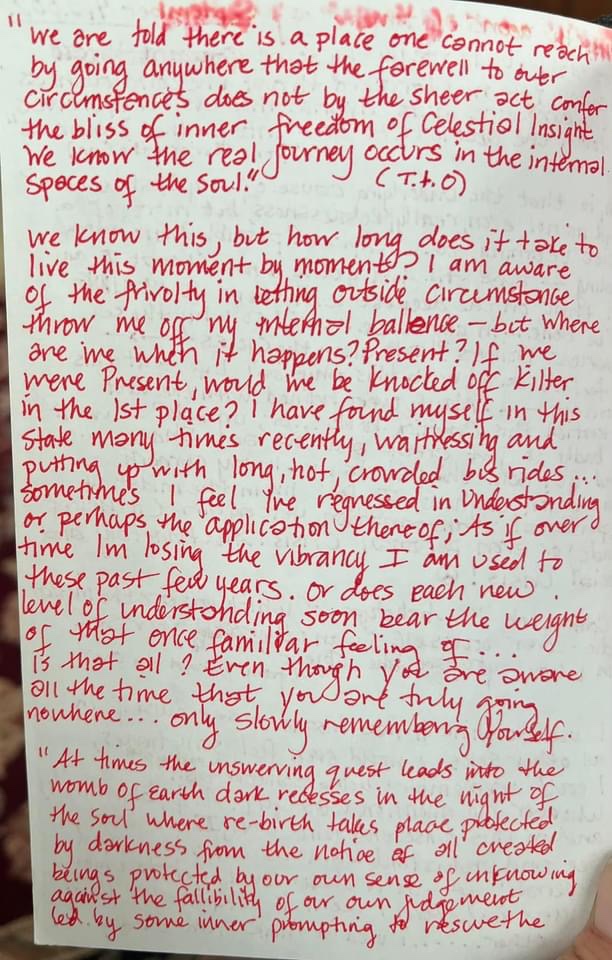 "We are told there is a place one cannot reach
by going anywhere that the farewell to outer
circumstances does not by the sheer act confer
the bliss of inner freedom of Celestial Insight
We know the real journey occurs in the internal
spaces of the soul." (T.t.O)
We know this, but how long does it take to
live this moment by moment? I am aware
of the frivolty in letting outside circumstance
throw me off my internal ballence – but where
are we when it happens? Present? If we
were Present, would we be knocked off kilter
in the 1st place? I have found myself in this
state many times recently, waitressing and
putting up with long, hot, crowded bus rides...
sometimes I feel I've regressed in understanding
or perhaps the application thereof; As if over
time Im losing the vibrancy I am used to
these past few years. or does each new
level of understanding soon bear the weight
of that once familiar feeling of...
is that all? Even though you are aware
all the time that you are truly going
nowhere... only slowly remembering yourself.
"At times the unswerving quest leads into the
womb of Earth dark recesses in the night of
the soul where re-birth takes place protected
by darkness from the notice of all created
beings protected by our own sense of unknowing
against the fallibility of our own judgement
led by some inner prompting to the